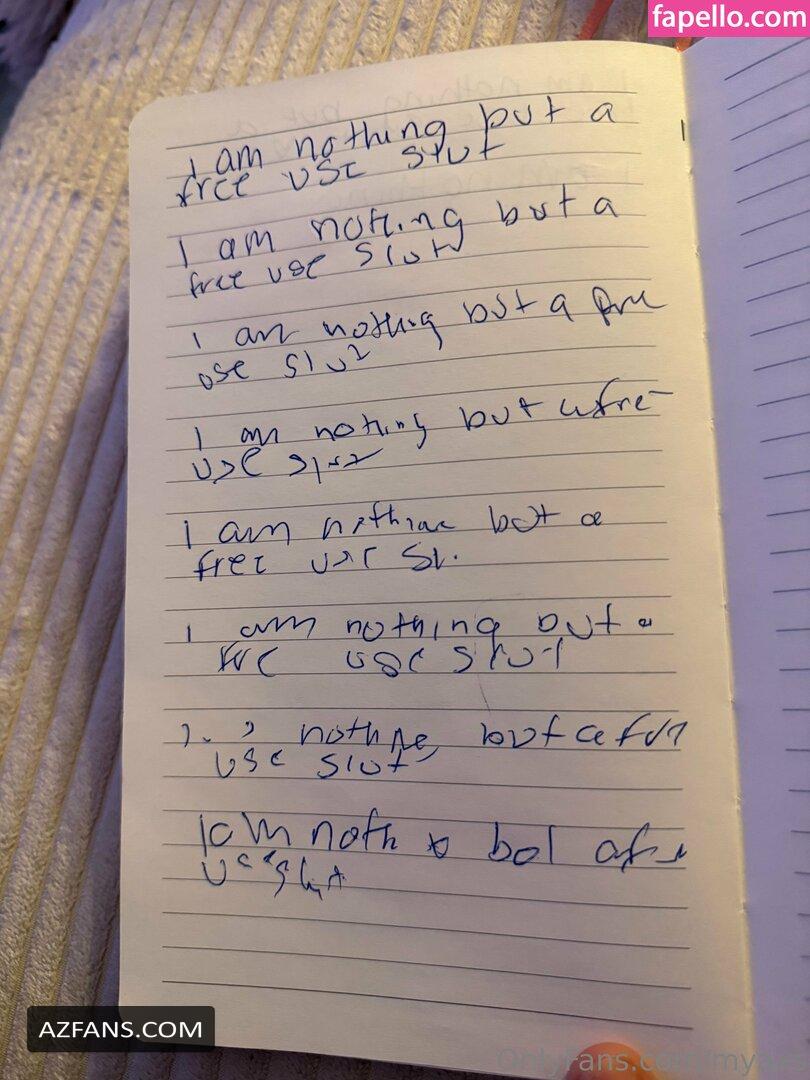 fapello.com
I am nothing but a
free use slut
I am nothing but a
free use slut
I am nothing but a free
use slut
I am nothing but a free
use slut
I am nothing but a
free use sl.
I am nothing but a
free use slut
nothing but a
use slut
I am but
use slut
AZFANS.COM